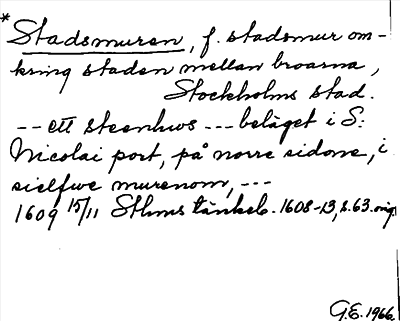 * Stadsmuren, f. stadsmur om-
kring staden mellan broarna,
Stockholms stad.
-- ett steenhws --- beläget i S:
Nicolai port, på norre sidone, i
sielfwe murenom, ---
1609 15/11 Sthms tänkeb. 1608-13, s. 63. orig.
G.E. 1966.